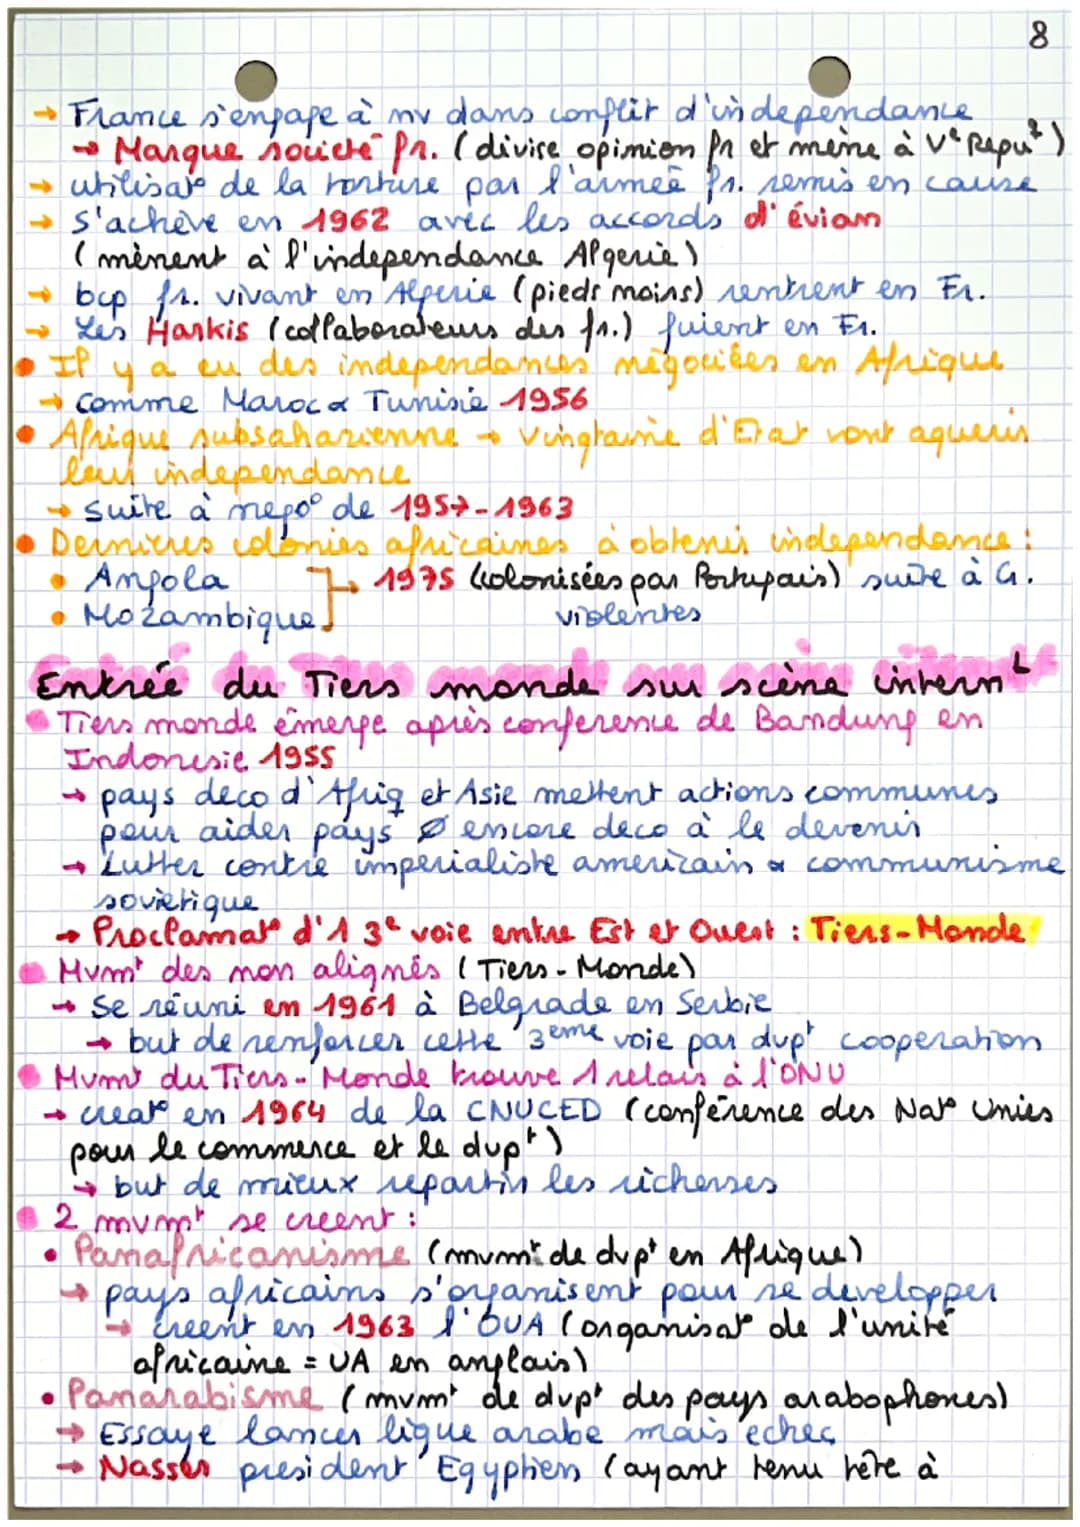 8
→ France s'engage à nv dans conflit d'indépendance
→ Marque société fr. (divise opinion fr et mène à Ve Repu²)
→ utilisat° de la torture par l'armée fr. remis en cause
→ s'achève en 1962 avec les accords d'évian
(mènent à l'independance Algerie)
→ bcp fr. vivant en Algerie (pieds moins) rentrent en Fr.
→ Les Harkis (collaborateurs des fr.) fuient en Fr.
• Il y a eu des independances négociées en Afrique
→ comme Maroc & Tunisie 1956
• Afrique subsaharienne → vingtaine d'Etat vont aquerir
leur independance
→ suite à nego° de 1957-1963
• Dernières colonies africaines à obtenir independance :
• Angola ]→ 1975 (colonisées par Portugais) suite à G.
• Mozambique violentes
Entrée du Tiers monde sur scène internL
• Tiers monde émerge après conference de Bandung en
Indonesie 1955
→ pays deco d'Afriq et Asie mettent actions communes
pour aider pays Ø encore deco à le devenir
→ Lutter contre imperialiste americain & communisme
sovietique
→ Proclamat° d'1 3e voie entre Est et Ouest : Tiers-Monde
• Mvmt des non alignés (Tiers-Monde)
→ Se réuni en 1961 à Belgrade en Serbie
→ but de renforcer cette 3eme voie par dvpt cooperation
• Mvmt du Tiers-Monde trouve 1 relais à l'ONU
→ creat° en 1964 de la CNUCED (conférence des Nat° Unies
pour le commerce et le dvpt)
→ but de mieux repartir les richesses
• 2 mvmt se creent :
• Panafricanisme (mvmt de dvpt en Afrique)
→ pays africains s'organisent pour se developper
→ creent en 1963 l'OUA (organisat° de l'unité
africaine = UA en anglais)
• Panarabisme (mvmt de dvpt des pays arabophones)
→ Essaye lancer ligue arabe mais echec
→ Nasser president Egyptien (ayant tenu tête à